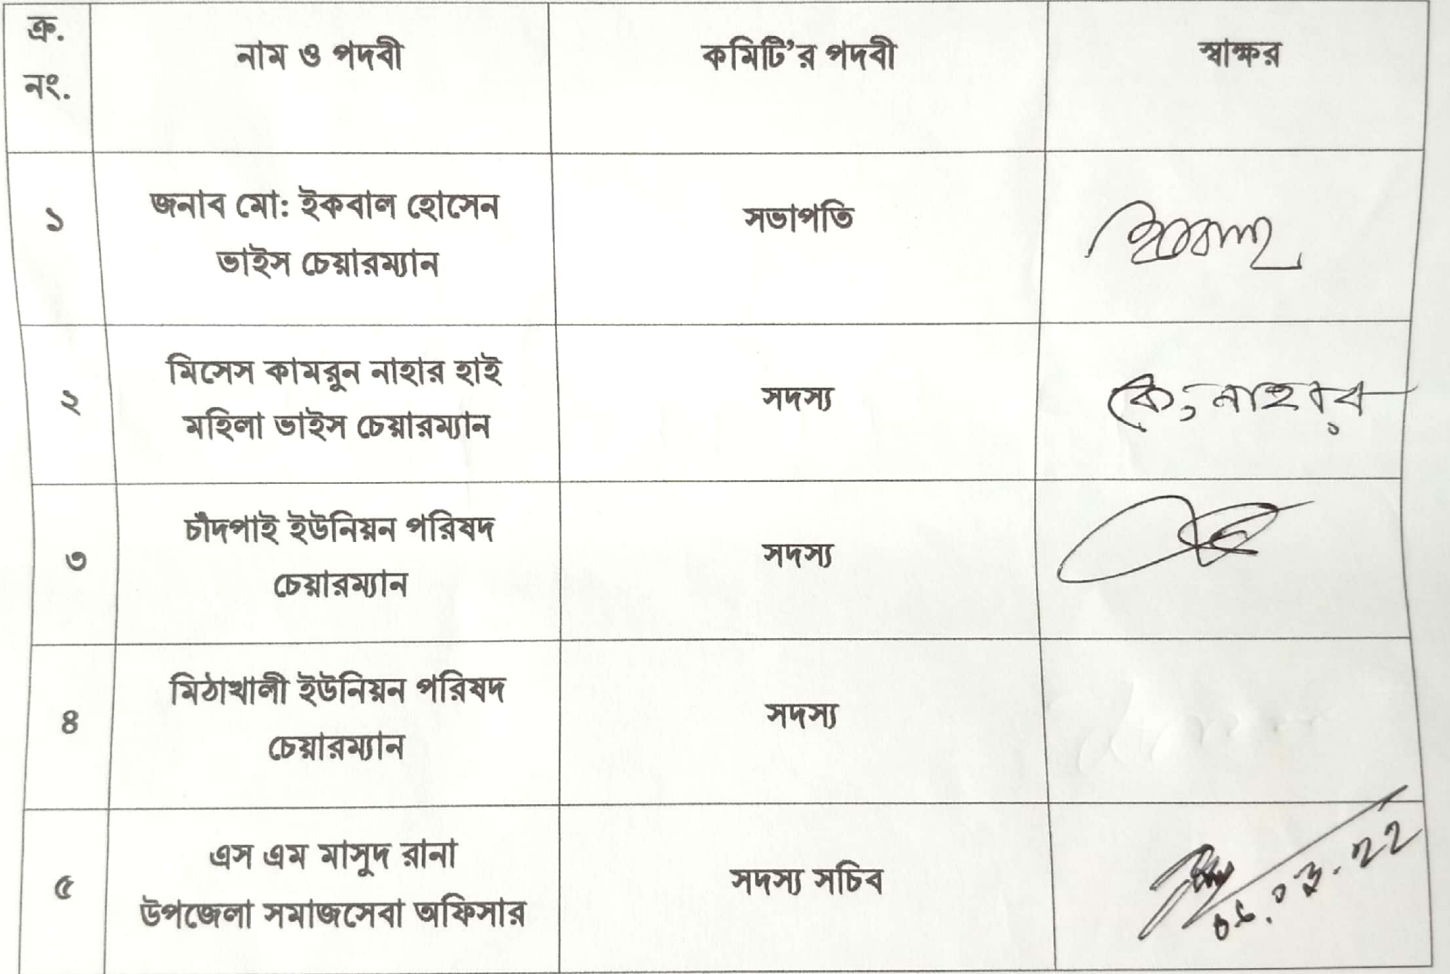 ক্র.
নং.
নাম ও পদবী
কমিটি'র পদবী
স্বাক্ষর
১
জনাব মো: ইকবাল হোসেন
ভাইস চেয়ারম্যান
সভাপতি
২
মিসেস কামরুন নাহার হাই
মহিলা ভাইস চেয়ারম্যান
সদস্য
কে, নাহার
৩
চাঁদপাই ইউনিয়ন পরিষদ
চেয়ারম্যান
সদস্য
৪
মিঠাখালী ইউনিয়ন পরিষদ
চেয়ারম্যান
সদস্য
৫
এস এম মাসুদ রানা
উপজেলা সমাজসেবা অফিসার
সদস্য সচিব